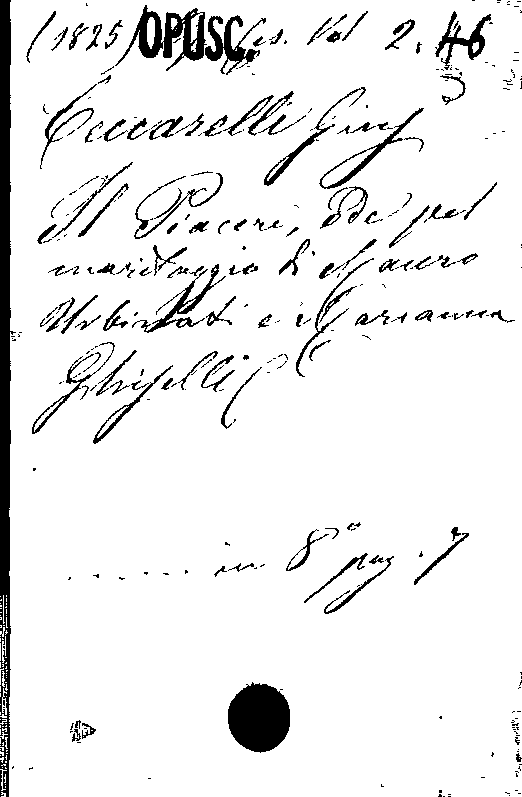 (1825) OPUSC. Ces. Vol 2. 46
5
Ceccarelli Giuy
Il Piaceri, Ode pel
maritaggio di Mauro
Urbinati e Marianna
Ghiselli
...... in 8° pag. 7